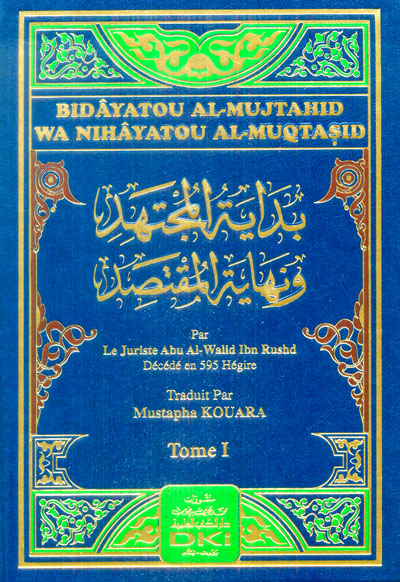 BIDÂYATOU AL-MUJTAHID
WA NIHÂYATOU AL-MUQTAṢID
بداية المجتهد
ونهاية المقتصد
Par
Le Juriste Abu Al-Walid Ibn Rushd
Décédé en 595 Hégire
Traduit Par
Mustapha KOUARA
Tome I
دار الكتب العلمية
DKI